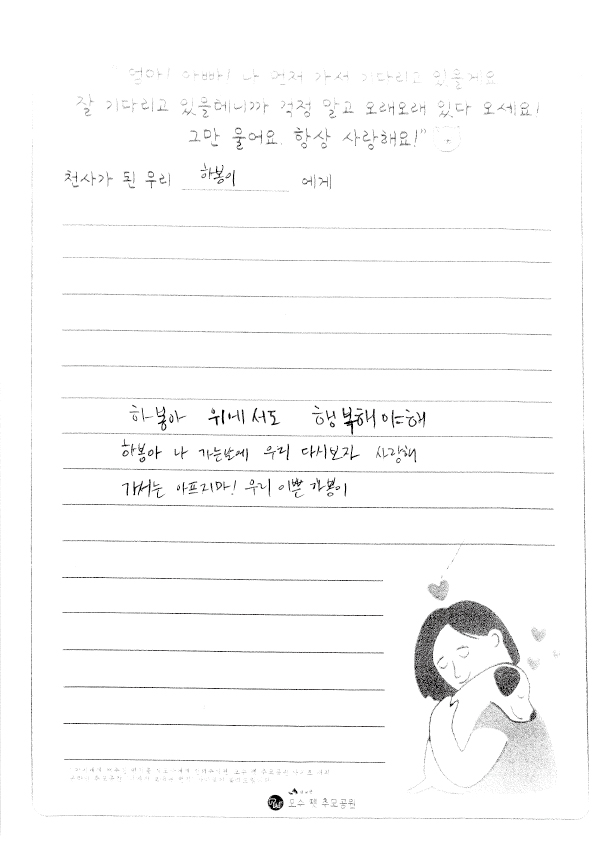 "엄마! 아빠! 나 먼저 가서 기다리고 있을게요
잘 기다리고 있을테니까 걱정 말고 오래오래 있다 오세요!
그만 울어요. 항상 사랑해요!"
천사가 된 우리 하봉이 에게
하봉아 위에서도 행복해야해
하봉아 나 가는날에 우리 다시보자 사랑해
가서는 아프지마! 우리 이쁜 하봉이
오수 펫 추모공원